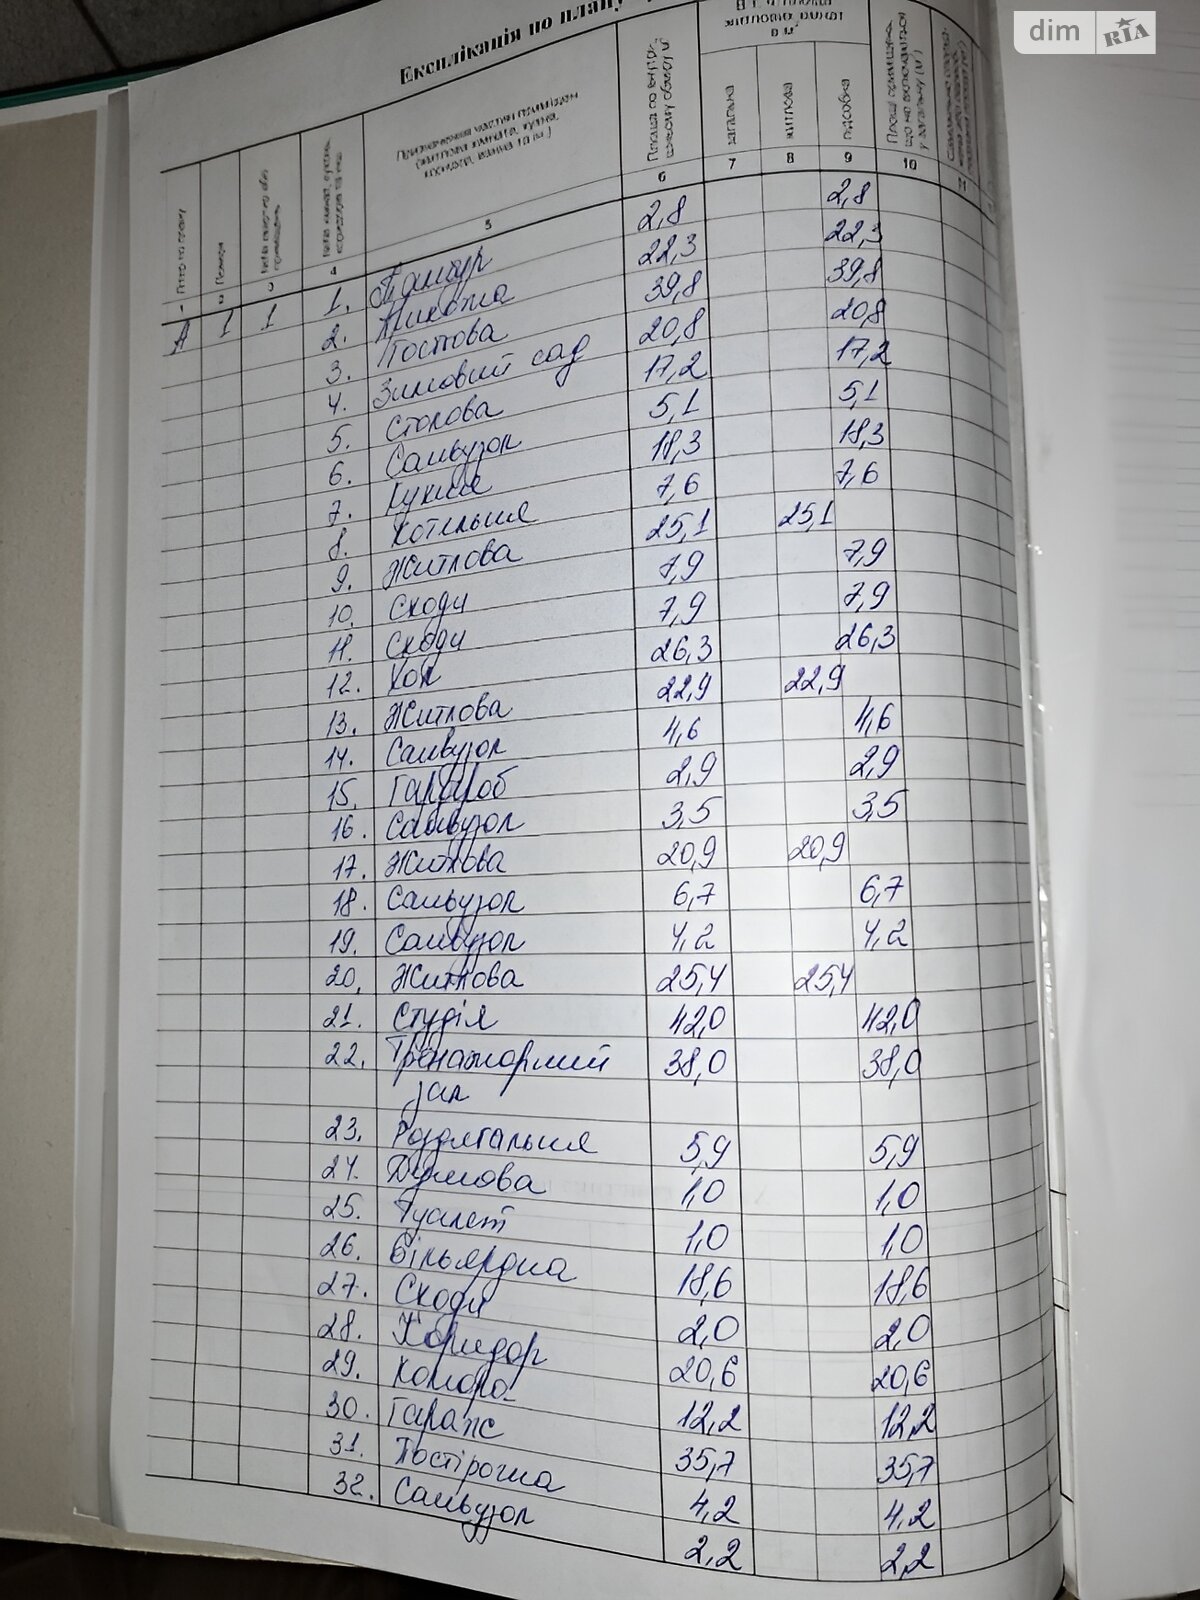 dim RIA
Експлікація по плану
житлового, адмін
в м²
Літера по плану
Поверх
Призначення частин приміщен
(житлова кімната, кухня,
коридор, ванна та ін.)
Площа по внутріш-
ньому обміру м²
загальна
житлова
підсобна
Площі приміщень,
що не включаються
у загальну (м²)
1 2 3 4 5 6 7 8 9 10 11
А 1 1 1. Тамбур 2,8 2,8
2. 22,3 22,3
3. Гостова 39,8 39,8
4. Зимовий сад 20,8 20,8
5. Столова 17,2 17,2
6. Санвузол 5,1 5,1
7. Кухня 18,3 18,3
8. Котельня 7,6 7,6
9. Житлова 25,1 25,1
10. Сходи 7,9 7,9
11. Сходи 7,9 7,9
12. Хол 26,3 26,3
13. Житлова 22,9 22,9
14. Санвузол 4,6 4,6
15. Гардероб 2,9 2,9
16. Санвузол 3,5 3,5
17. Житлова 20,9 20,9
18. Санвузол 6,7 6,7
19. Санвузол 4,2 4,2
20. Житлова 25,4 25,4
21. Студія 42,0 42,0
22. Тренажорний 38,0 38,0
зал
23. Роздягальня 5,9 5,9
24. Душова 1,0 1,0
25. Туалет 1,0 1,0
26. Більярдна 18,6 18,6
27. Сходи 2,0 2,0
28. Коридор 20,6 20,6
29. Комора 12,2 12,2
30. Гараж 35,7 35,7
31. Постірочна 4,2 4,2
32. Санвузол 2,2 2,2